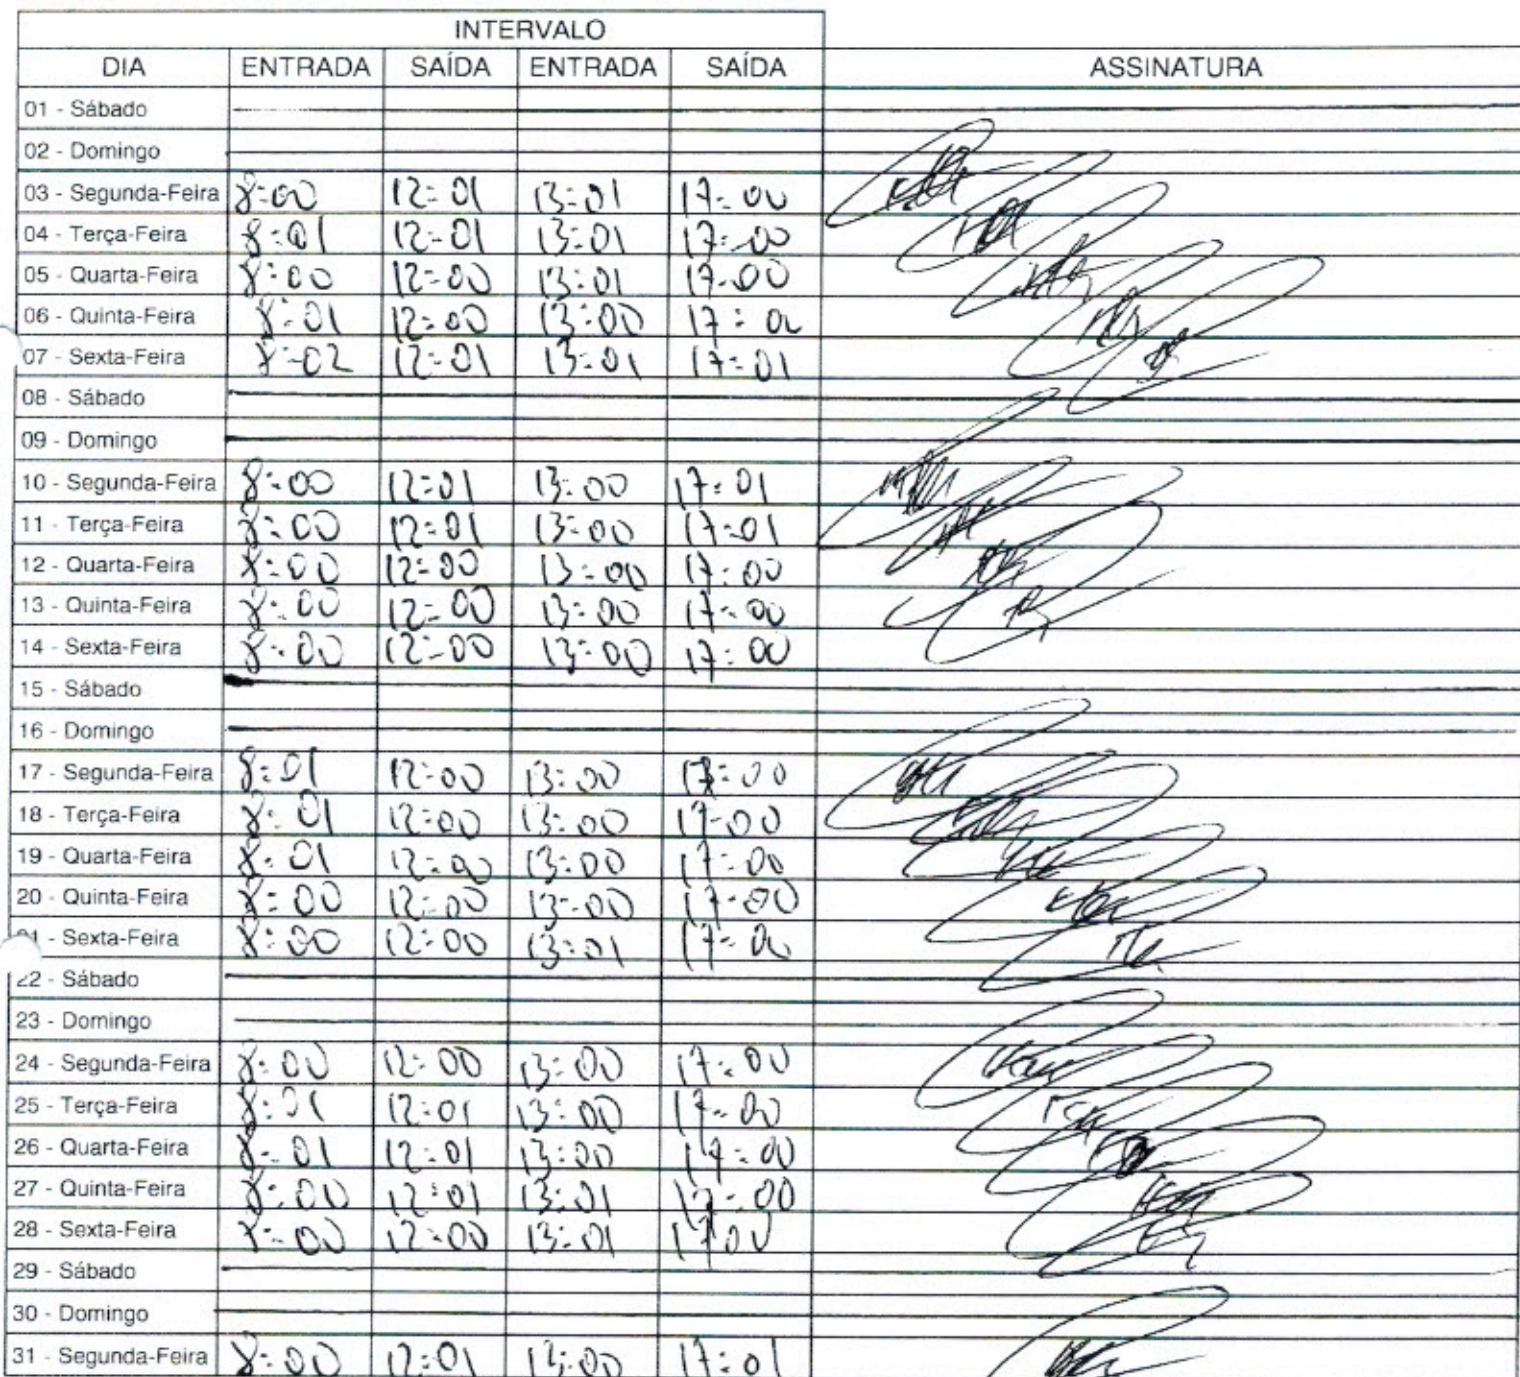 INTERVALO
DIA ENTRADA SAÍDA ENTRADA SAÍDA ASSINATURA
01 - Sábado
02 - Domingo
03 - Segunda-Feira 8:00 12:01 13:01 17:00
04 - Terça-Feira 8:01 12:01 13:01 17:00
05 - Quarta-Feira 8:00 12:00 13:01 17:00
06 - Quinta-Feira 8:01 12:00 13:00 17:00
07 - Sexta-Feira 8:02 12:01 13:01 17:01
08 - Sábado
09 - Domingo
10 - Segunda-Feira 8:00 12:01 13:00 17:01
11 - Terça-Feira 8:00 12:01 13:00 17:01
12 - Quarta-Feira 8:00 12:00 13:00 17:00
13 - Quinta-Feira 8:00 12:00 13:00 17:00
14 - Sexta-Feira 8:00 12:00 13:00 17:00
15 - Sábado
16 - Domingo
17 - Segunda-Feira 8:01 12:00 13:00 17:00
18 - Terça-Feira 8:01 12:00 13:00 17:00
19 - Quarta-Feira 8:01 12:00 13:00 17:00
20 - Quinta-Feira 8:00 12:00 13:00 17:00
21 - Sexta-Feira 8:00 12:00 13:01 17:00
22 - Sábado
23 - Domingo
24 - Segunda-Feira 8:00 12:00 13:00 17:00
25 - Terça-Feira 8:01 12:01 13:00 17:00
26 - Quarta-Feira 8:01 12:01 13:00 17:00
27 - Quinta-Feira 8:00 12:01 13:01 17:00
28 - Sexta-Feira 8:00 12:00 13:01 17 00
29 - Sábado
30 - Domingo
31 - Segunda-Feira 8:00 12:01 13:00 17:01